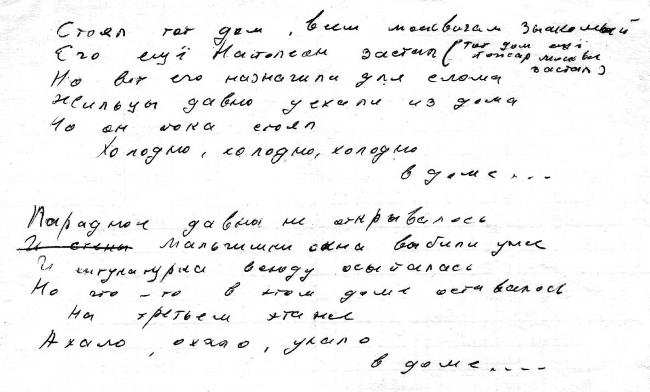 Стоял тот дом, всем москвичам знакомый
Его ещё Наполеон застал (тот дом ещё пожар москвы застал)
Но вот его назначили для слома
Жильцы давно уехали из дома
Но он пока стоял
Холодно, холодно, холодно
в доме....
Парадное давно не открывалось
И стены Мальчишки окна выбили уже
И штукатурка всюду осыпалась
Но что-то в этом доме оставалось
на третьем этаже
Ахало, охало, ухало
в доме....